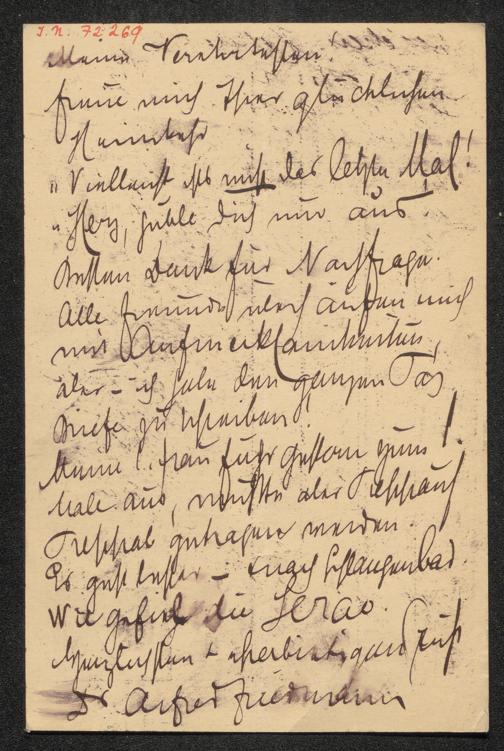 J.N. 72269
Meine Verehrtesten.
freue mich Ihrer glücklichen
Heimkehr
"Vielleicht ists nicht das letzte Mal!
"Herz, fühle dich nur aus.
Besten Dank für Nachfrage.
Alle Freunde überhäufen mich
mit Aufmerksamkeiten,
aber – ich habe den ganzen Tag
Briefe zu schreiben!
Meine l. Frau fuhr gestern zum 1.
Male aus, mußte aber Treppauf
Treppab getragen werden.
Es geht besser – nach Schlangenbad.
Wie gefiel die Serao.
herzlichsten + ehrerbietigen Gruß
Dr Alfred Friedmann